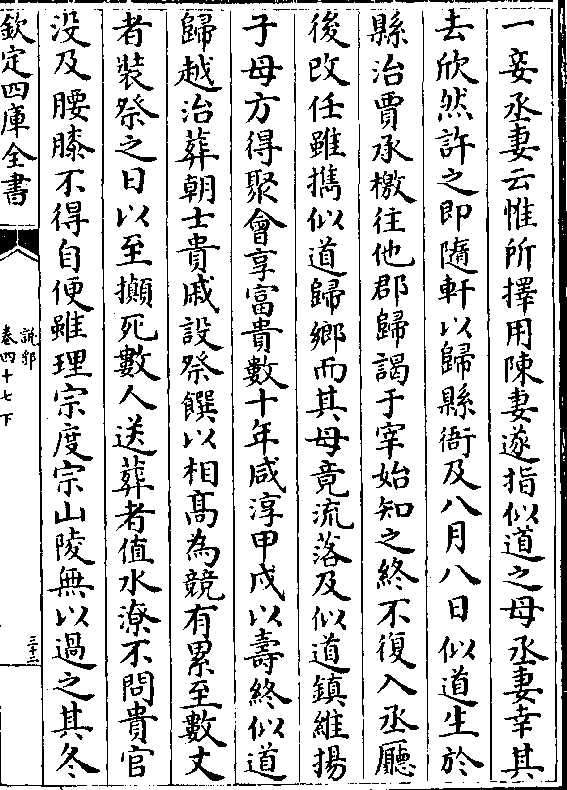 一妾丞妻云惟所擇用陳妻遂指似道之母丞妻幸其
去欣然許之即隨軒以歸縣衙及八月八日似道生於
縣治賈丞檄往他郡歸謁于宰始知之終不復入丞廳
後改任雖攜似道歸鄉而其母竟流落及似道鎮維揚
子母方得聚會享富貴數十年咸淳甲戌以壽終似道
歸越治葬朝士貴戚設祭饌以相髙為競有累至數丈
者裝祭之日以至攧死數人送葬者值水潦不問貴官
没及腰膝不得自便雖理宗度宗山陵無以過之其冬
欽定四庫全書
說郛
卷四十七下
三十三